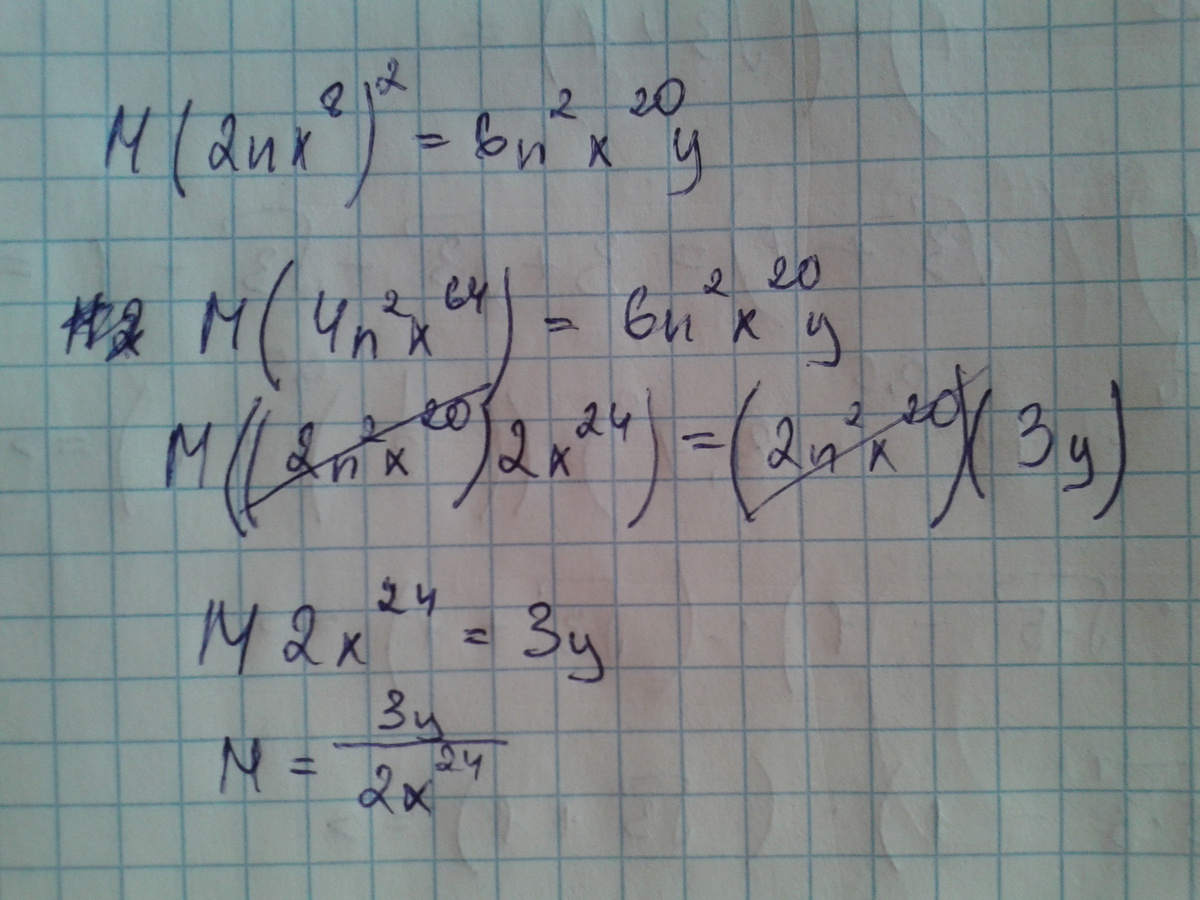 M(2nx⁸)² = 6n²x²⁰y
M(4n²x⁶⁴) = 6n²x²⁰y
M((2n²x²⁰)2x²⁴) = (2n²x²⁰)(3y)
M 2x²⁴ = 3y
M = 3y/2x²⁴